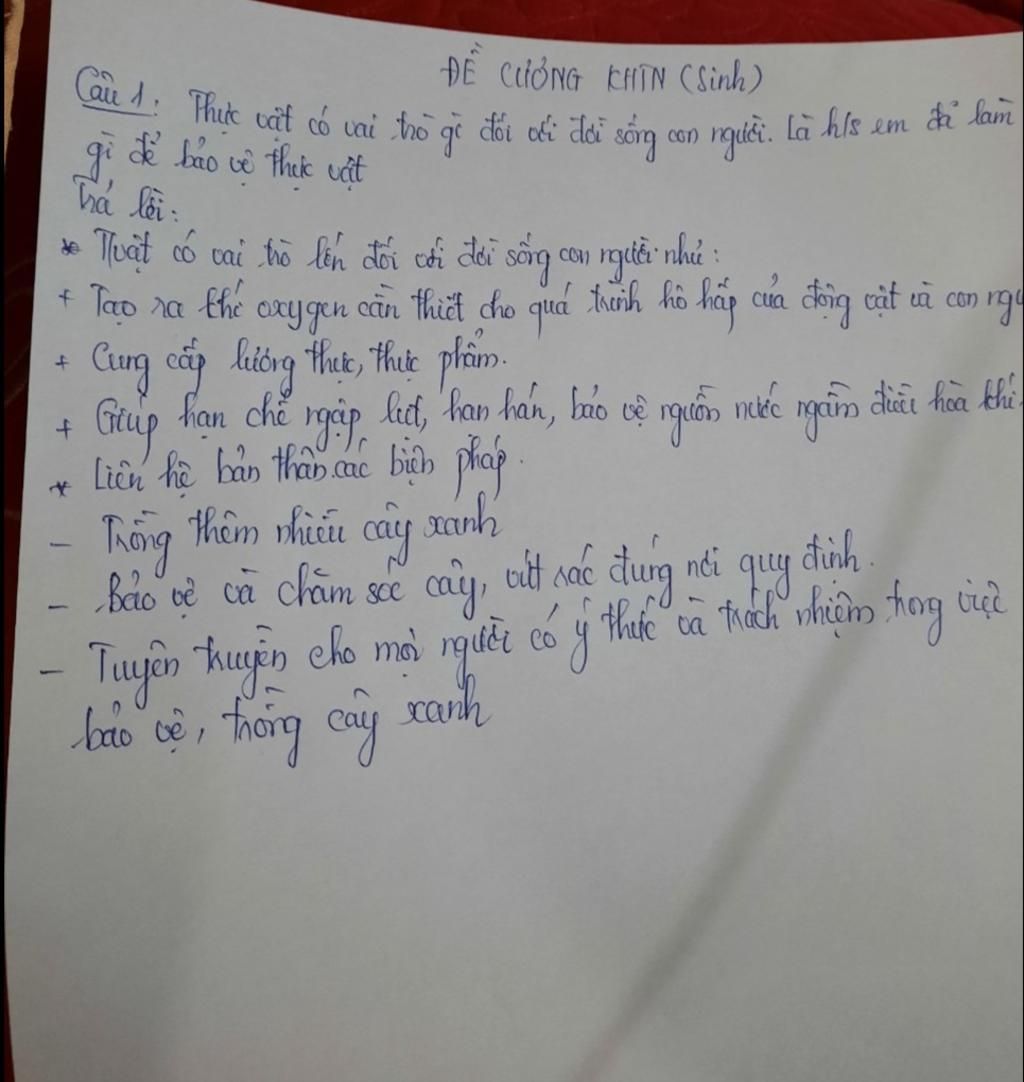 ĐỀ CƯƠNG KHTN (Sinh)
Câu 1. Thực vật có vai trò gì đối với đời sống con người. Là h/s em đã làm
gì để bảo vệ thực vật
Trả lời:
* Tvật có vai trò lớn đối với đời sống con người như:
+ Tạo ra khí oxygen cần thiết cho quá trình hô hấp của động vật và con ngư
+ Cung cấp lương thực, thực phẩm.
+ Giúp hạn chế ngập lụt, hạn hán, bảo vệ nguồn nước ngầm điều hòa khí
* Liên hệ bản thân các biện pháp.
- Trồng thêm nhiều cây xanh
- Bảo vệ và chăm sóc cây, vứt rác đúng nơi quy định.
- Tuyên truyền cho mọi người có ý thức và trách nhiệm trong việc
bảo vệ, trồng cây xanh